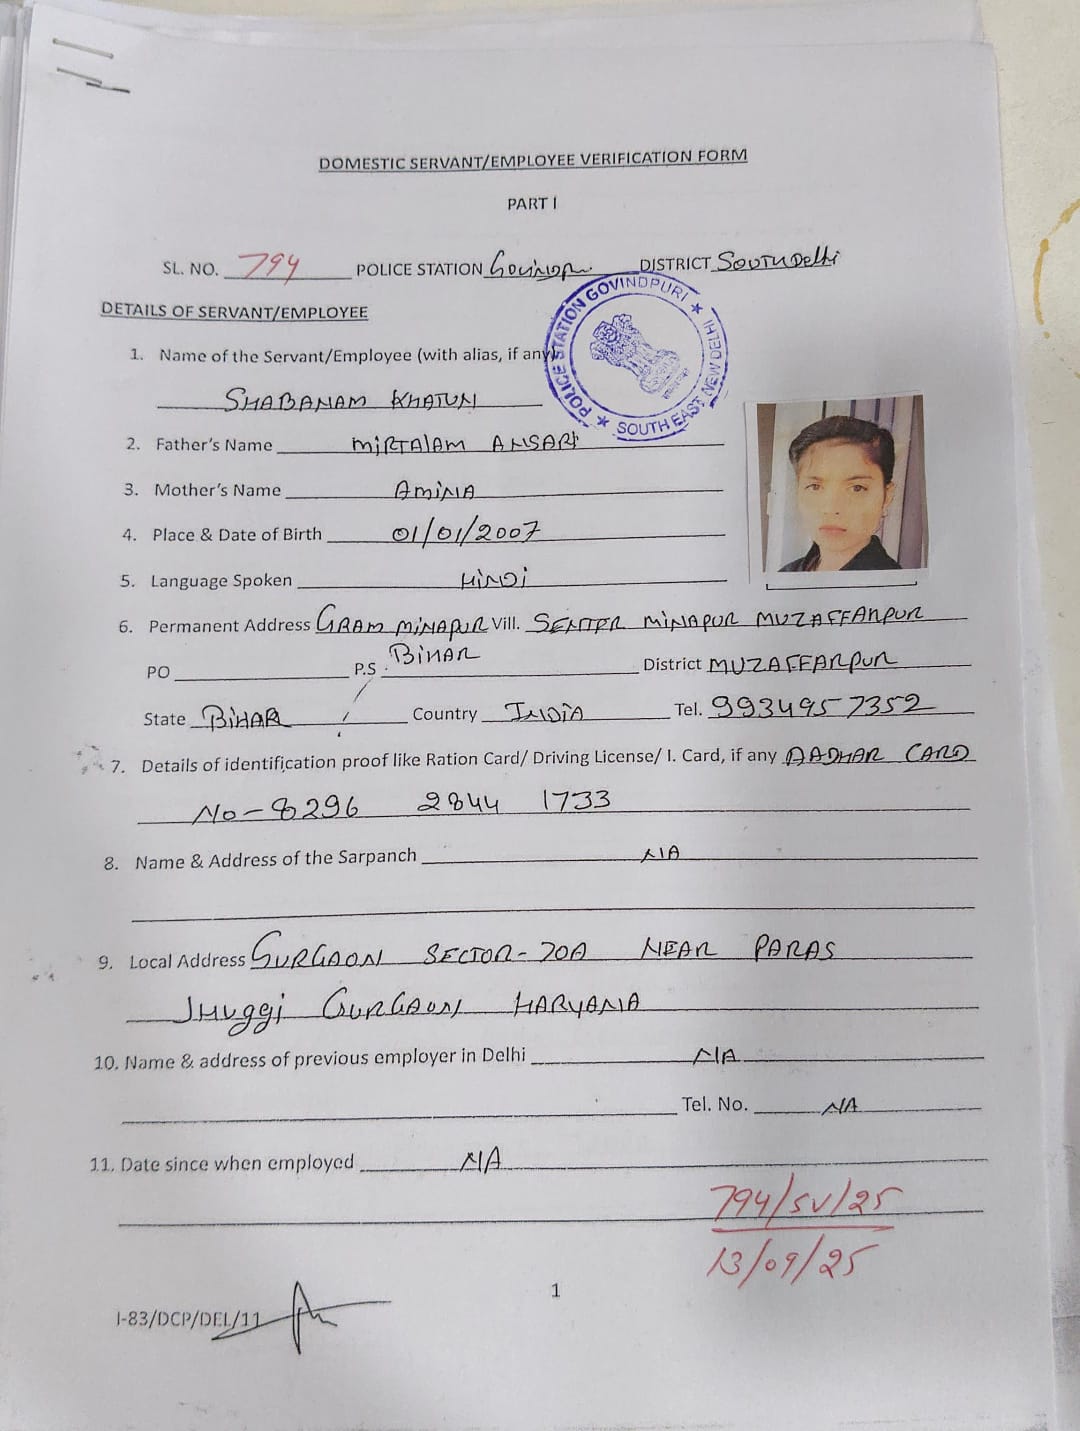 DOMESTIC SERVANT/EMPLOYEE VERIFICATION FORM
PART I
SL. NO. 794 POLICE STATION Govindpu DISTRICT SOUTH Delhi
DETAILS OF SERVANT/EMPLOYEE
POLICE STATION GOVINDPURI ★ SOUTH EAST NEW DELHI ★
1. Name of the Servant/Employee (with alias, if any)
SHABANAM KHATUN
2. Father's Name MIRTALAM ANSARI
3. Mother's Name AMINA
4. Place & Date of Birth 01/01/2007
5. Language Spoken HINDI
6. Permanent Address GRAM MINAPUR Vill. SENTER MINAPUR MUZAFFARPUR
PO P.S. BIHAR District MUZAFFARPUR
State BIHAR Country INDIA Tel. 9934957352
7. Details of identification proof like Ration Card/ Driving License/ I. Card, if any AADHAR CARD
No - 8296 2844 1733
8. Name & Address of the Sarpanch NA
9. Local Address GURGAON SECTOR-70A NEAR PARAS
JHUggi GURGAON HARYANA
10. Name & address of previous employer in Delhi NA
Tel. No. NA
11. Date since when employed NA
794/SV/25
13/09/25
1
I-83/DCP/DEL/11